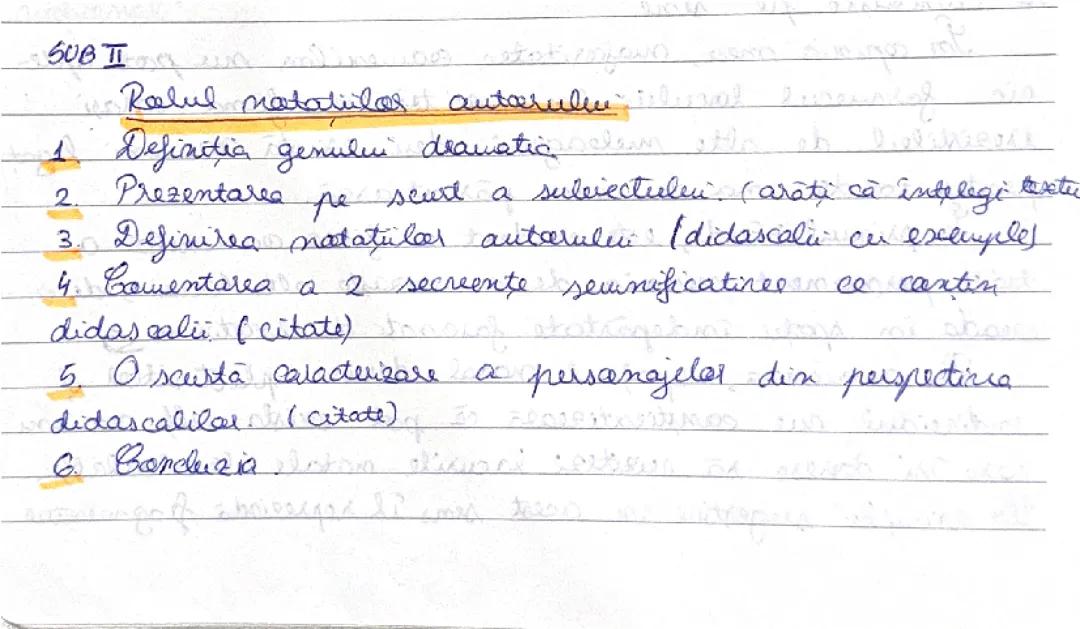 SUB II
Rolul notațiilor autorului
1. Definiția genului dramatic
2. Prezentarea pe scurt a subiectului. (arăți că înțelegi textu
3. Definirea notațiilor autorului (didascalii cu exemple)
4. Comentarea a 2 secvențe semnificative ce conțin
didascalii (citate)
5. O scurtă caracterizare a personajelor din perspectiva
didascaliilor (citate)
6. Concluzia.